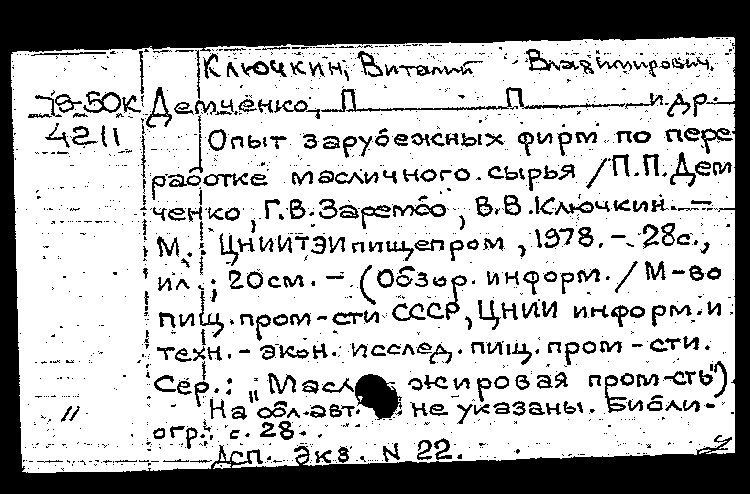 Ключкин, Виталий Владимирович.
78-50к Демченко, П П и др.
4211 Опыт зарубежных фирм по пере-
работке масличного сырья / П.П.Дем
ченко, Г.В.Зарембо, В.В.Ключкин. –
М.: ЦНИИТЭИпищепром, 1978. – 28с.,
ил.; 20см. – (Обзор. информ. / М-во
пищ. пром-сти СССР, ЦНИИ информ. и
техн.-экон. исслед. пищ. пром-сти.
Сер.: "Масл жировая пром-сть")
На обл. авт. не указаны. Библи-
11 огр.: с. 28.
Дсп. Экз. N 22.